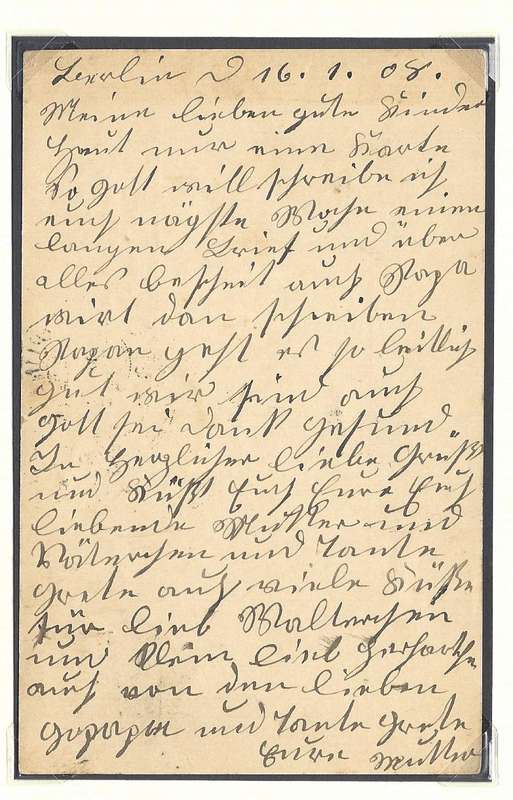 Berlin d 16. 1. 08.
Meine lieben gute Kinder
Heut nur eine Karte
So Gott will schreibe ich
euch nägste Woche einen
langen Brief und über
alles bescheit auch Papa
wirt dan schreiben
Papan geht es so leidlich
gut wir sind auch
Gott sei Dank gesund
In herzlicher liebe Grüßt
und Küßt Euch Eure Euch
liebende Mutter und
Väterchen und Tante
Grete auch viele Küße
für lieb Walterchen
und klein lieb Gerhartchen
auch von den lieben
und Tante Grete
Eure Mutter